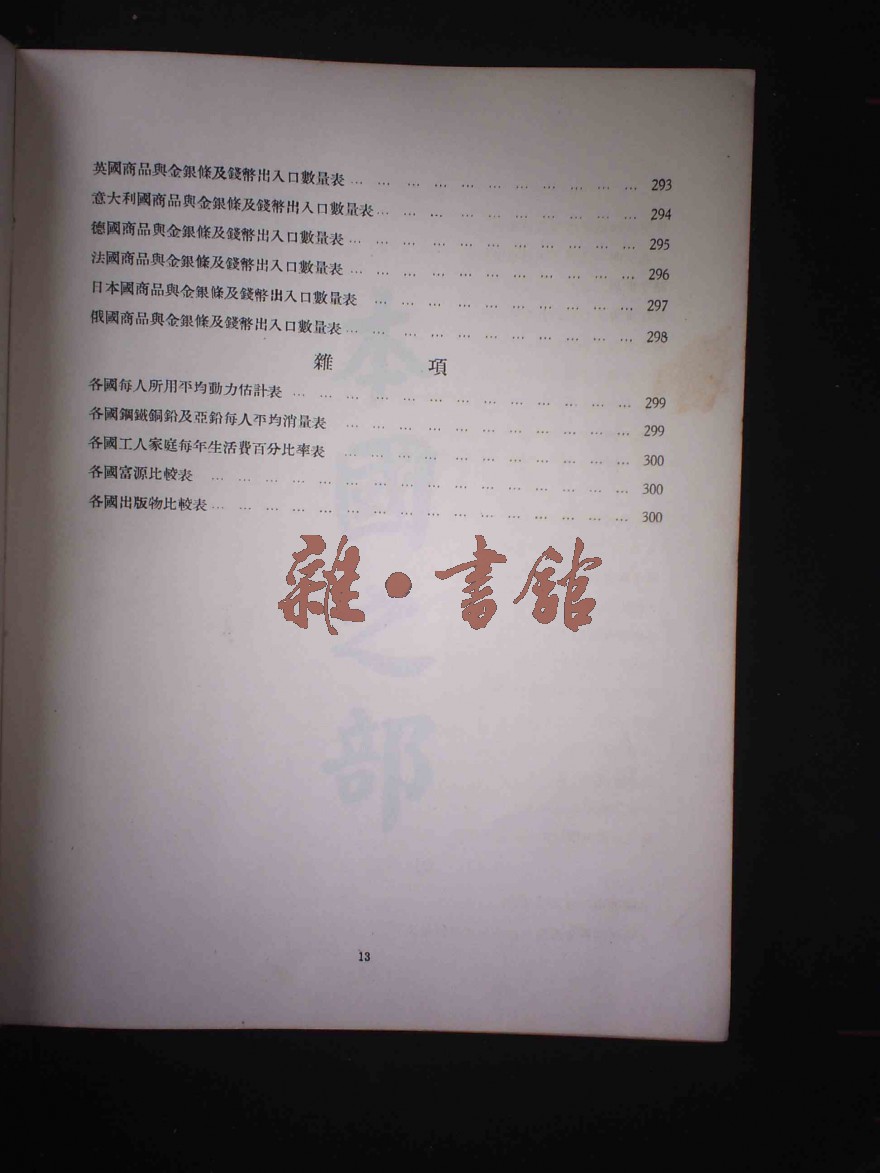 英國商品與金銀條及錢幣出入口數量表 … … … … … … … … … … … 293
意大利國商品與金銀條及錢幣出入口數量表… … … … … … … … … … 294
德國商品與金銀條及錢幣出入口數量表 … … … … … … … … … … … 295
法國商品與金銀條及錢幣出入口數量表 … … … … … … … … … … … 296
日本國商品與金銀條及錢幣出入口數量表 … … … … … … … … … … 297
俄國商品與金銀條及錢幣出入口數量表… … … … … … … … … … … 298
雜 項
各國每人所用平均動力估計表 … … … … … … … … … … … … … 299
各國鋼鐵銅鉛及亞鉛每人平均消量表 … … … … … … … … … … … 299
各國工人家庭每年生活費百分比率表 … … … … … … … … … … … 300
各國富源比較表 … … … … … … … … … … … … … … … … 300
各國出版物比較表… … … … … … … … … … … … … … … … 300
雜·書館
本國之部
13